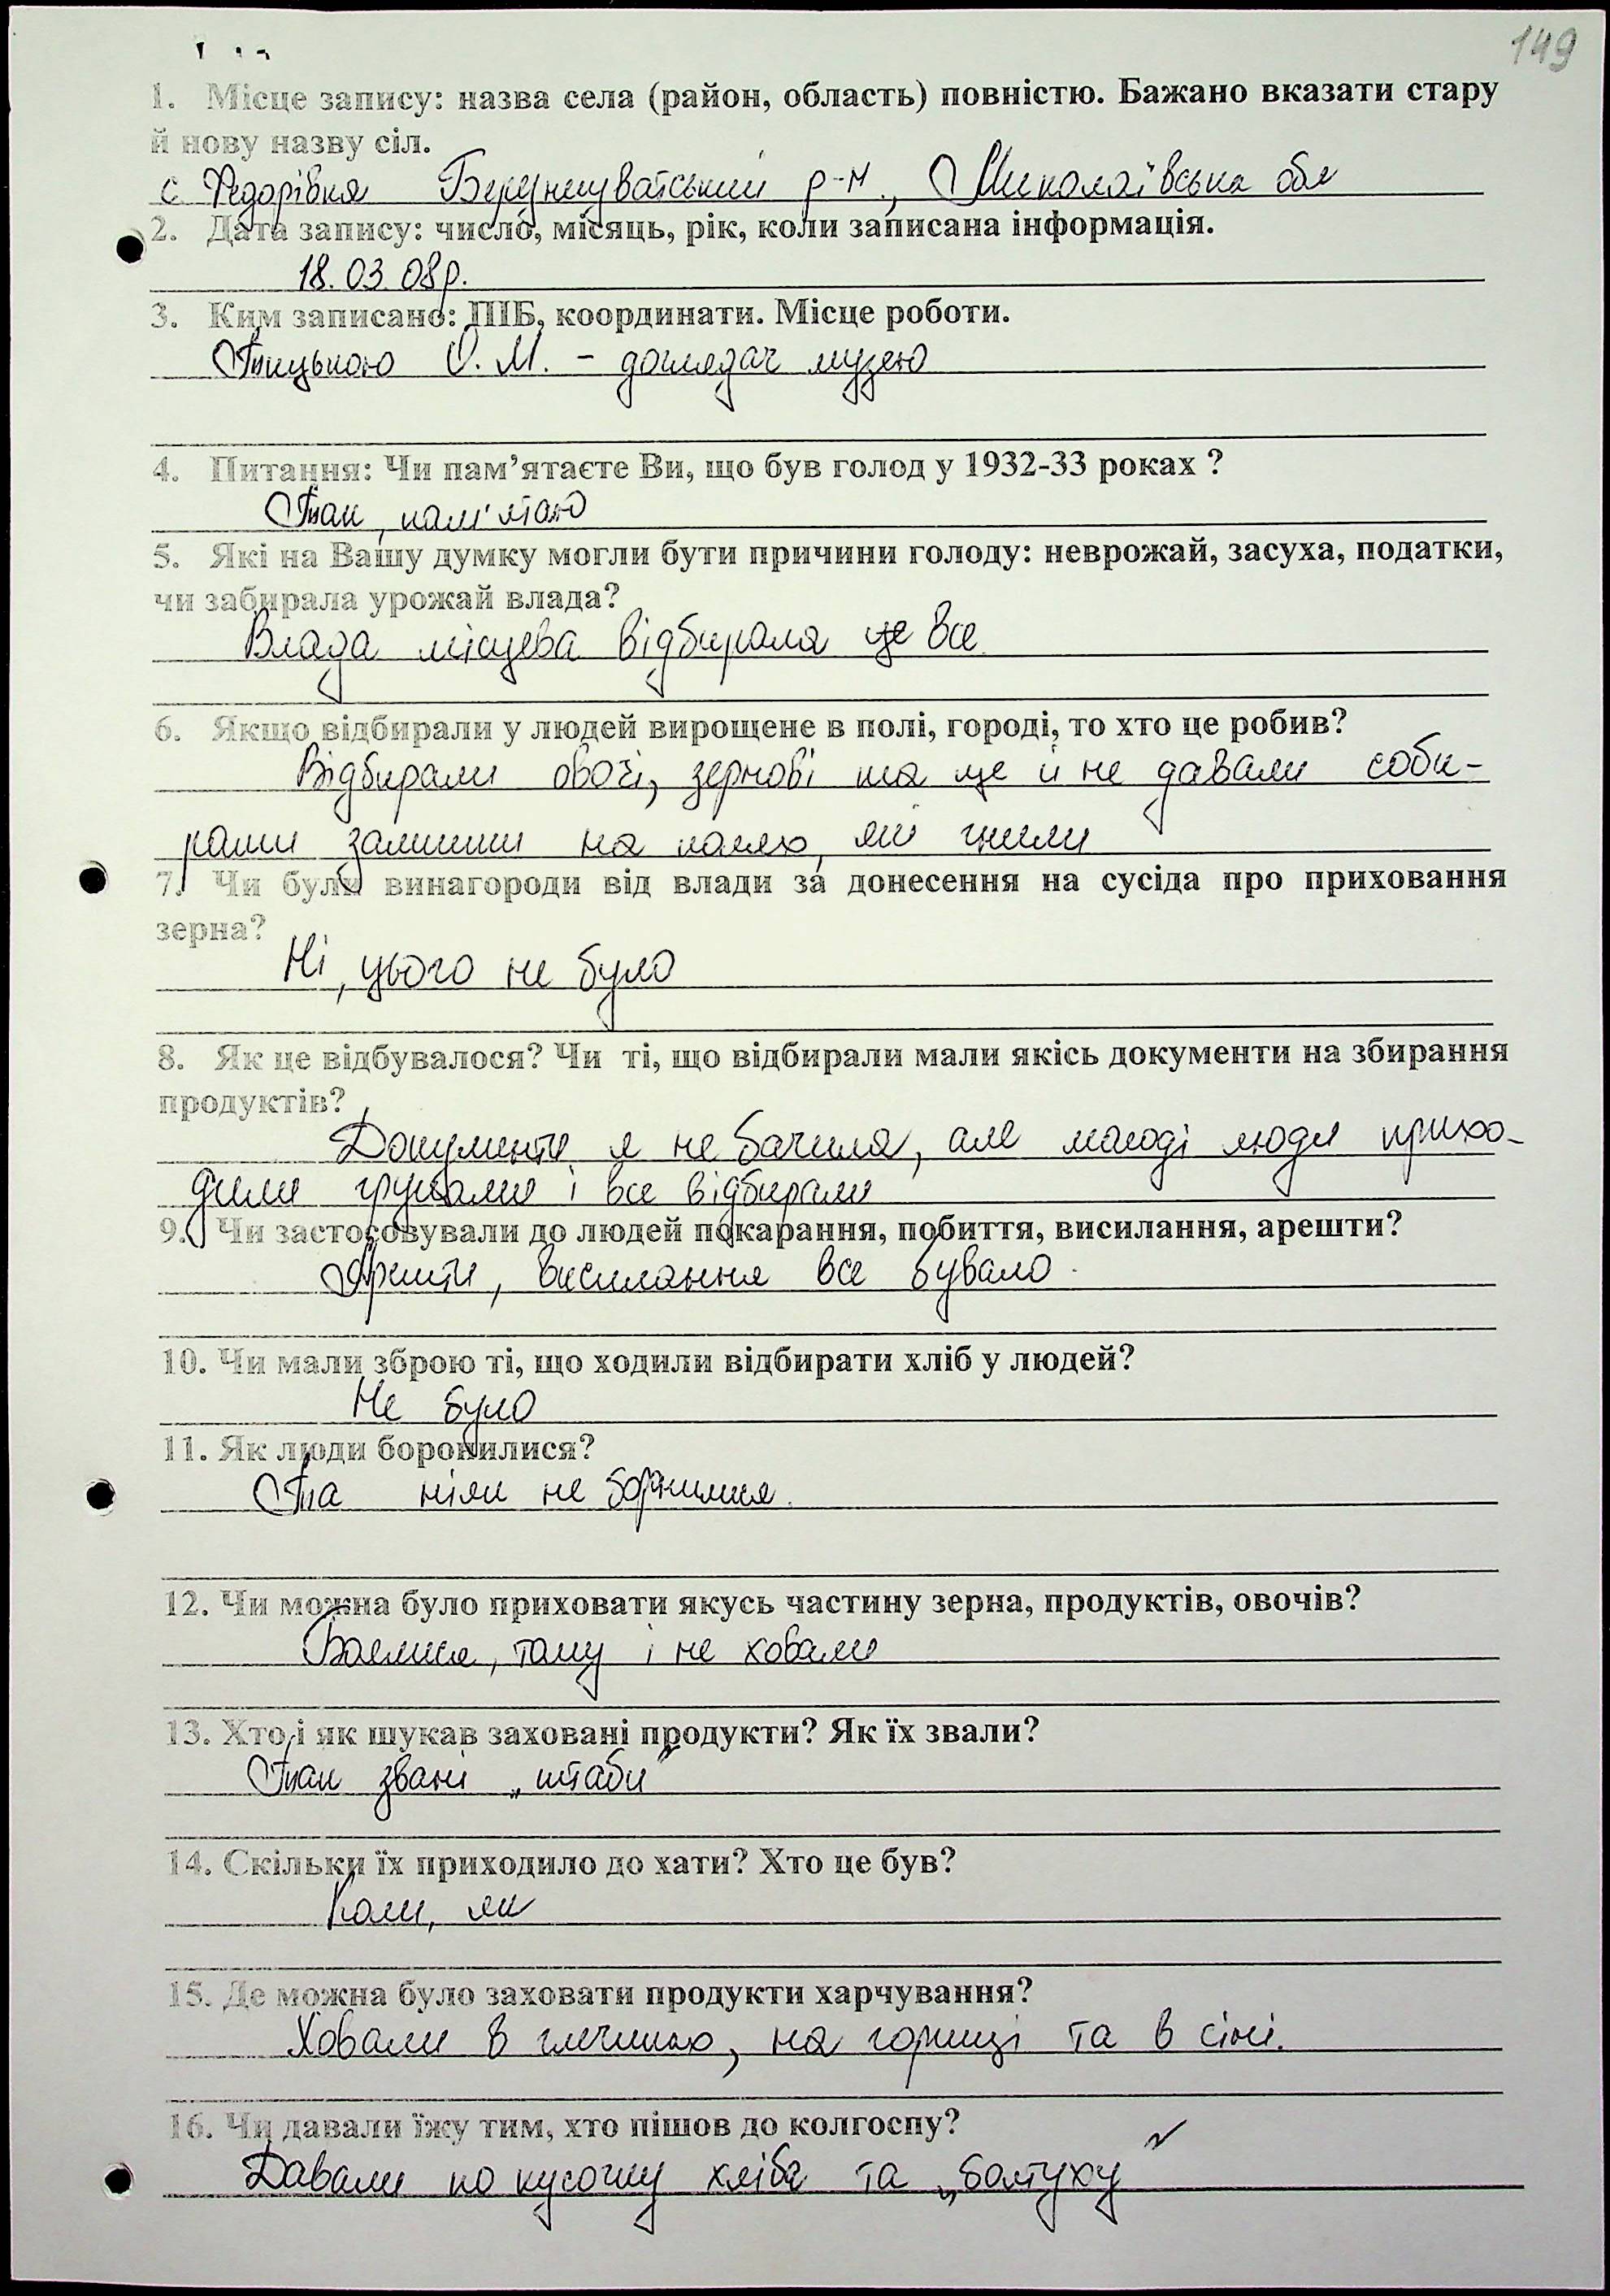 149
1. Місце запису: назва села (район, область) повністю. Бажано вказати стару
й нову назву сіл.
с Федорівка Березнегуватський р-н., Миколаївська обл
2. Дата запису: число, місяць, рік, коли записана інформація.
18.03.08р.
3. Ким записано: ПІБ, координати. Місце роботи.
О.М. - доглядач музею
4. Питання: Чи пам’ятаєте Ви, що був голод у 1932-33 роках ?
Так, пам'ятаю
5. Які на Вашу думку могли бути причини голоду: неврожай, засуха, податки,
чи забирала урожай влада?
Влада місцева відбирала це все
6. Якщо відбирали у людей вирощене в полі, городі, то хто це робив?
Відбирали овочі, зернові та ще й не давали соби-
рати залишки на полях, які гнили
7. Чи були винагороди від влади за донесення на сусіда про приховання
зерна?
Ні, цього не було
8. Як це відбувалося? Чи ті, що відбирали мали якісь документи на збирання
продуктів?
Документи я не бачила, але молоді люди прихо-
дили групами і все відбирали
9. Чи застосовували до людей покарання, побиття, висилання, арешти?
Арешти, висилання все бувало.
10. Чи мали зброю ті, що ходили відбирати хліб у людей?
Не було
11. Як люди боронилися?
Та ніяк не боронилися.
12. Чи можна було приховати якусь частину зерна, продуктів, овочів?
Боялися, тому і не ховали
13. Хто і як шукав заховані продукти? Як їх звали?
Так звані „штаби"
14. Скільки їх приходило до хати? Хто це був?
Коли, як
15. Де можна було заховати продукти харчування?
Ховали в глечиках, на горищі та в сіні.
16. Чи давали їжу тим, хто пішов до колгоспу?
Давали по кусочку хліба та „болтуху"